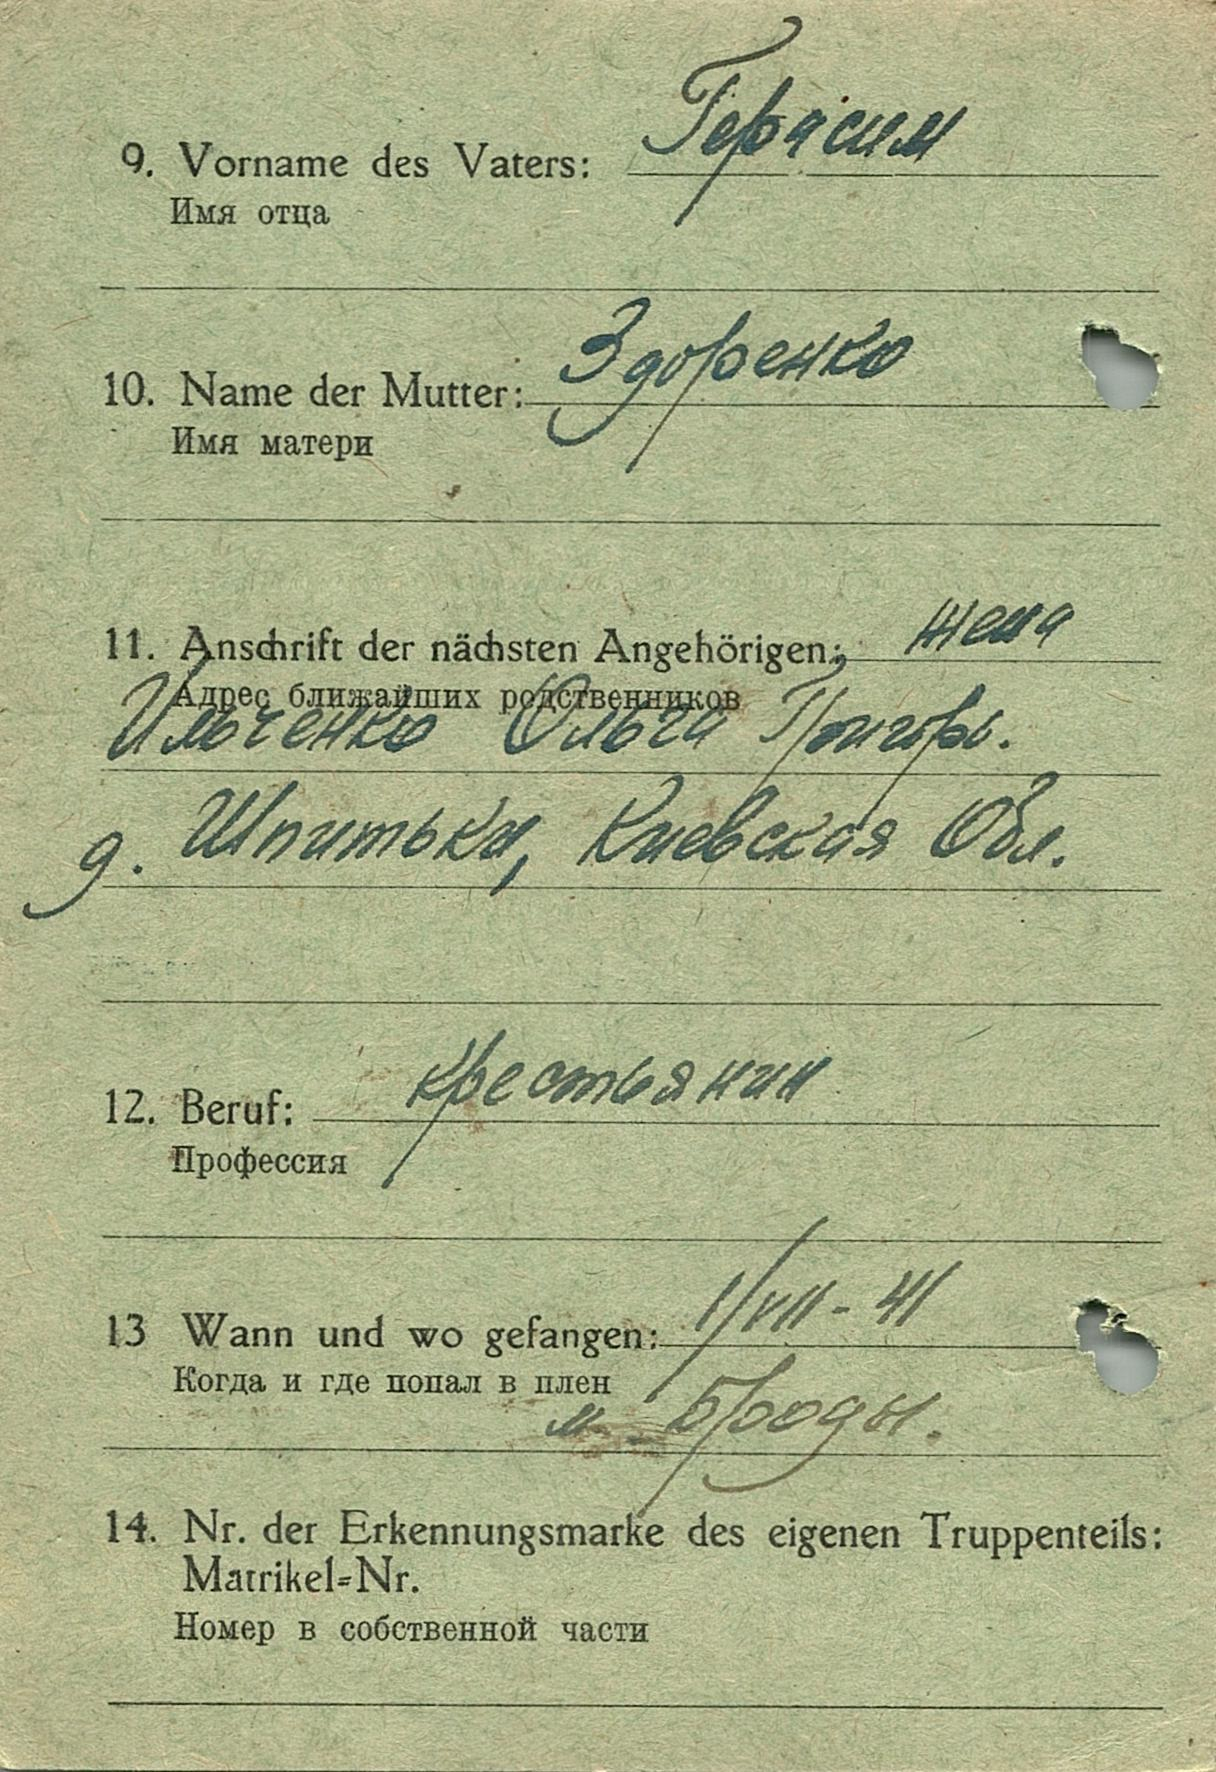 Герасим
9. Vorname des Vaters:
Имя отца
Здоренко
10. Name der Mutter:
Имя матери
11. Anschrift der nächsten Angehörigen: жена
Адрес ближайших родственников
Ильченко Ольга Григорь.
д. Шпитьки, Киевская Обл.
12. Beruf: крестьянин
Профессия
13 Wann und wo gefangen: 1/VII - 41
Когда и где попал в плен
м. Броды.
14. Nr. der Erkennungsmarke des eigenen Truppenteils:
Matrikel=Nr.
Номер в собственной части